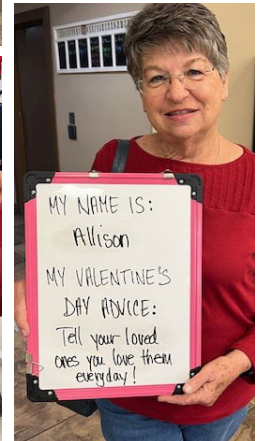 MY NAME IS:
Allison
MY VALENTINE'S
DAY ADVICE:
Tell your loved
ones you love them
everyday!